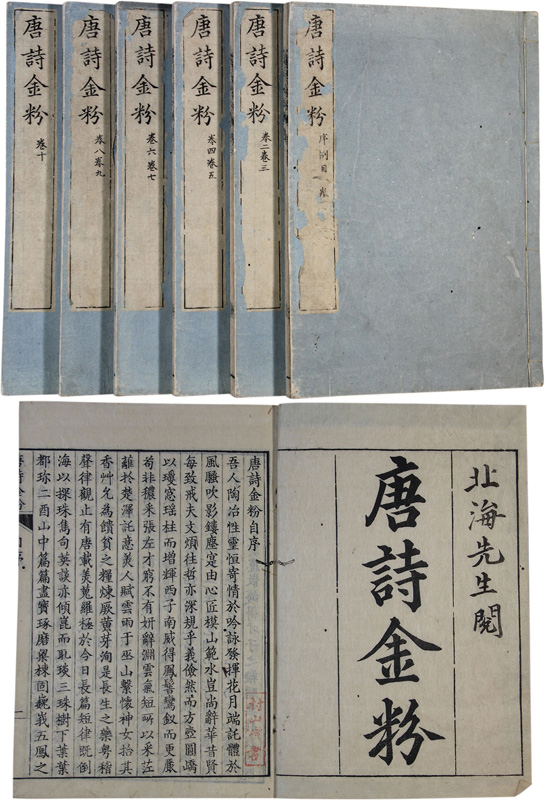 唐詩金粉
序例目
唐詩金粉
卷二卷三
唐詩金粉
卷四卷五
唐詩金粉
卷六卷七
唐詩金粉
卷八卷九
唐詩金粉
卷十
北海先生閱
唐詩金粉
唐詩金粉自序
吾人陶冶性靈恒寄情於吟詠發揮花月端託體於
風騷吹影鏤塵寔由心匠模山範水豈尚辭華昔賢
每致戒夫文煩往哲亦深規乎義儉然而方壺圓嶠
以瓊窓瑶柱而增輝西子南威得鳳髻鸞釵而更麗
苟非穠采張左才窮不有妍辭淵雲氣短所以采茝
蘺於楚澤託意美人賦雲雨于巫山繫懷神女拾其
香艸允為饋貧之糧煉厥黃芽洵是長生之藥粤稽
聲律觀止有唐載羡蒐羅極於今日長篇短律既倒
海以探珠集句英談亦傾崑而耴琰三珠樹下葉葉
都珎二酉山中篇篇盡寶琢磨梁棟固巍峩五鳳之